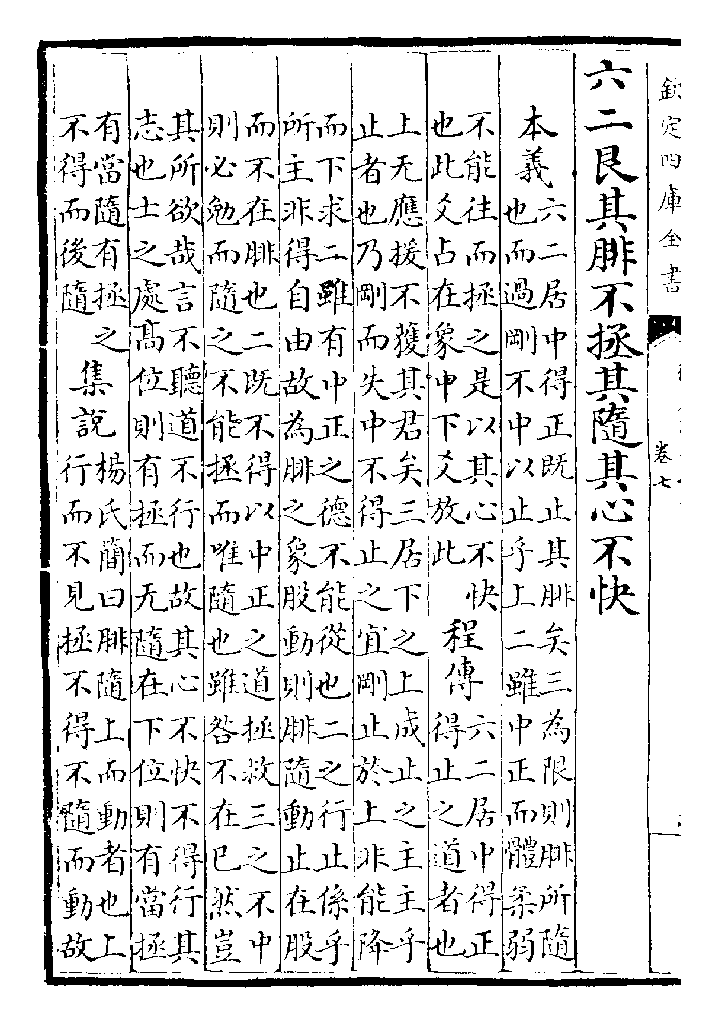 欽定四庫全書
卷七
六二艮其腓不拯其隨其心不快
本義
六二居中得正既止其腓矣三為限則腓所隨
也而過剛不中以止乎上二雖中正而體柔弱
不能往而拯之是以其心不快
也此爻占在象中下爻放此
程傳
六二居中得正
得止之道者也
上无應援不獲其君矣三居下之上成止之主主乎
止者也乃剛而失中不得止之宜剛止於上非能降
而下求二雖有中正之德不能從也二之行止係乎
所主非得自由故為腓之象股動則腓隨動止在股
而不在腓也二既不得以中正之道拯救三之不中
則必勉而隨之不能拯而唯隨也雖咎不在已然豈
其所欲哉言不聽道不行也故其心不快不得行其
志也士之處髙位則有拯而无隨在下位則有當拯
有當隨有拯之
不得而後隨
集說
楊氏簡曰腓隨上而動者也上
行而不見拯不得不隨而動故